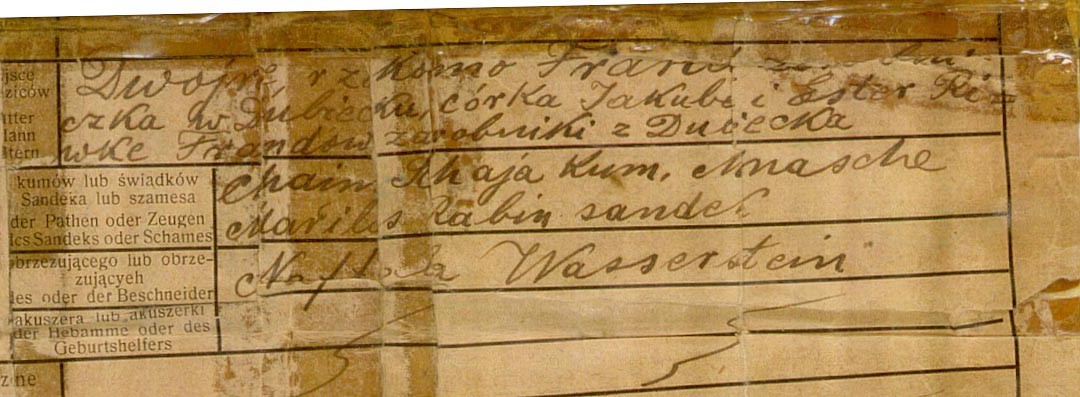 jsce
ziców
Dwojre rzkomo Frand
czka w Dubiecku, córka Jakuba i Ester Ri=
utter
lann
ltern
wke Frandów zarobniki z Dubiecka
kumów lub świadków
Sandeka lub szamesa
der Pathen oder Zeugen
lcs Sandeks oder Schames
Chaim Schaja kum, Anasche
Mariles Rabin sandek
brzezującego lub obrze-
zującyeh
les oder der Beschneider
Naftala Wasserstein
akuszera lub akuszerki
der Hebamme oder des
Geburtshelfers
zne